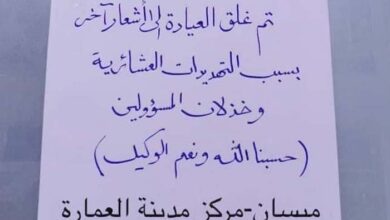 تم غلق العيادة الى أشعار آخر
بسبب التهديدات العشائرية
وخذلان المسؤولين
(حسبنا الله ونعم الوكيل)
ميسان-مركز مدينة العمارة